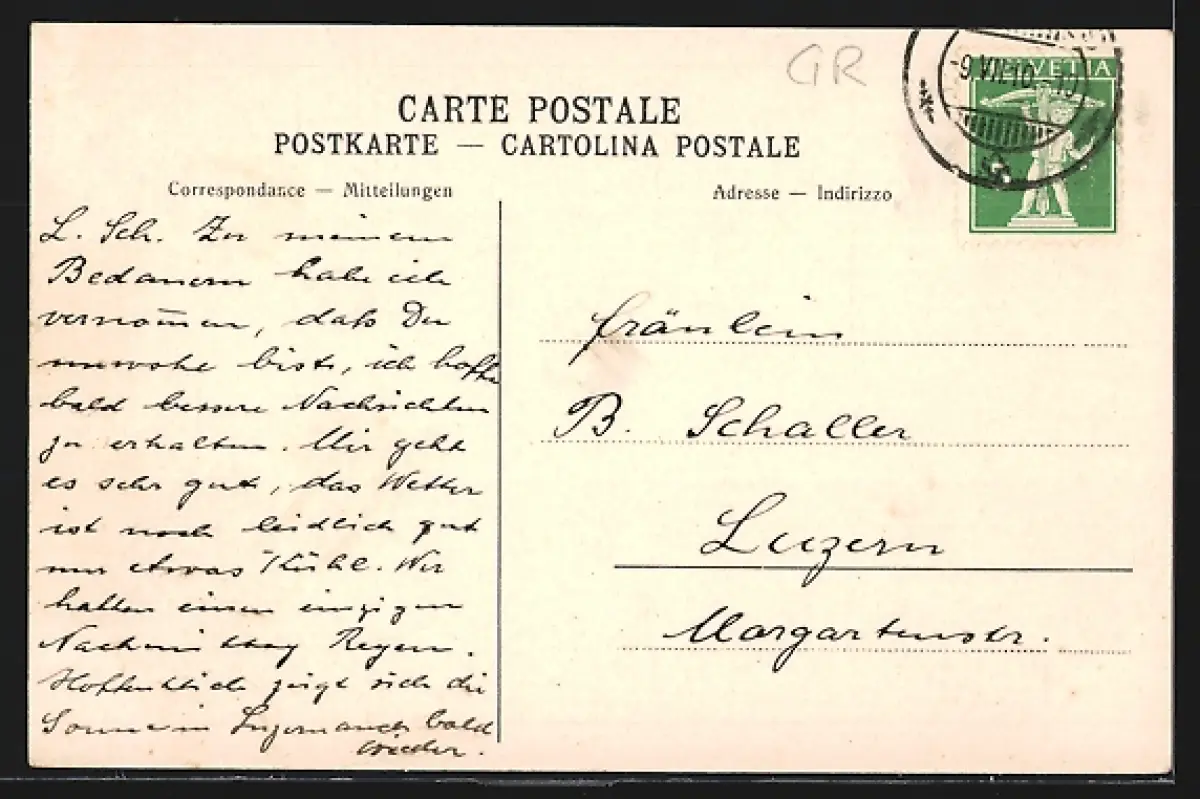 GR
-9.VII.10.-10
HELVETIA
CARTE POSTALE
POSTKARTE — CARTOLINA POSTALE
Correspondance — Mitteilungen
Adresse — Indirizzo
L. Sch. Zu meinem
Bedauern habe ich
vernom̄en, daß Du
unwohl bist, ich hoffe
bald bessere Nachrichten
zu erhalten. Mir geht
es sehr gut, das Wetter
ist noch leidlich gut
nur etwas kühl. Wir
hatten einen einzigen
Nachmittag Regen.
Hoffentlich zeigt sich die
Sonne in Luzern auch bald
wieder.
Fräulein
B. Schaller
Luzern
Morgartenstr.